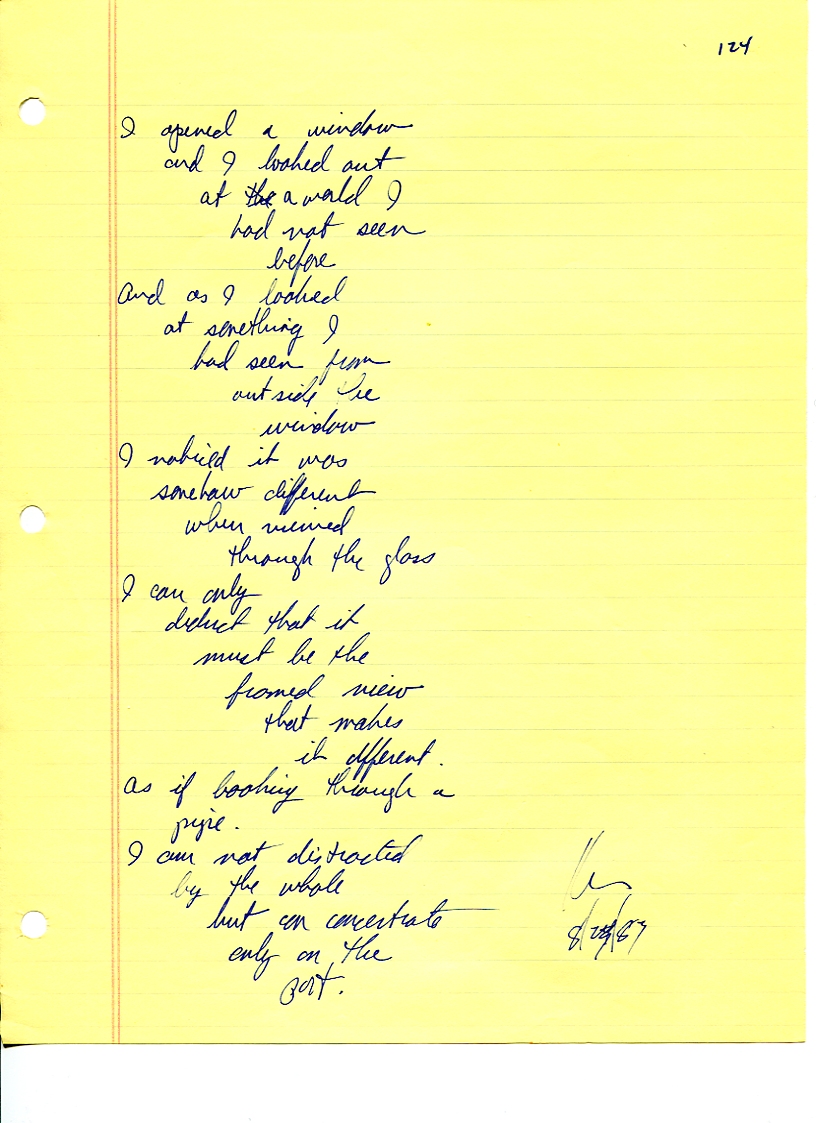 124
I opened a window
and I looked out
at the a world I
had not seen
before
And as I looked
at something I
had seen from
outside the
window
I noticed it was
somehow different
when viewed
through the glass
I can only
deduct that it
must be the
framed view
that makes
it different.
As if looking through a
pipe.
I am not distracted
by the whole
but can concentrate
only on the
part.